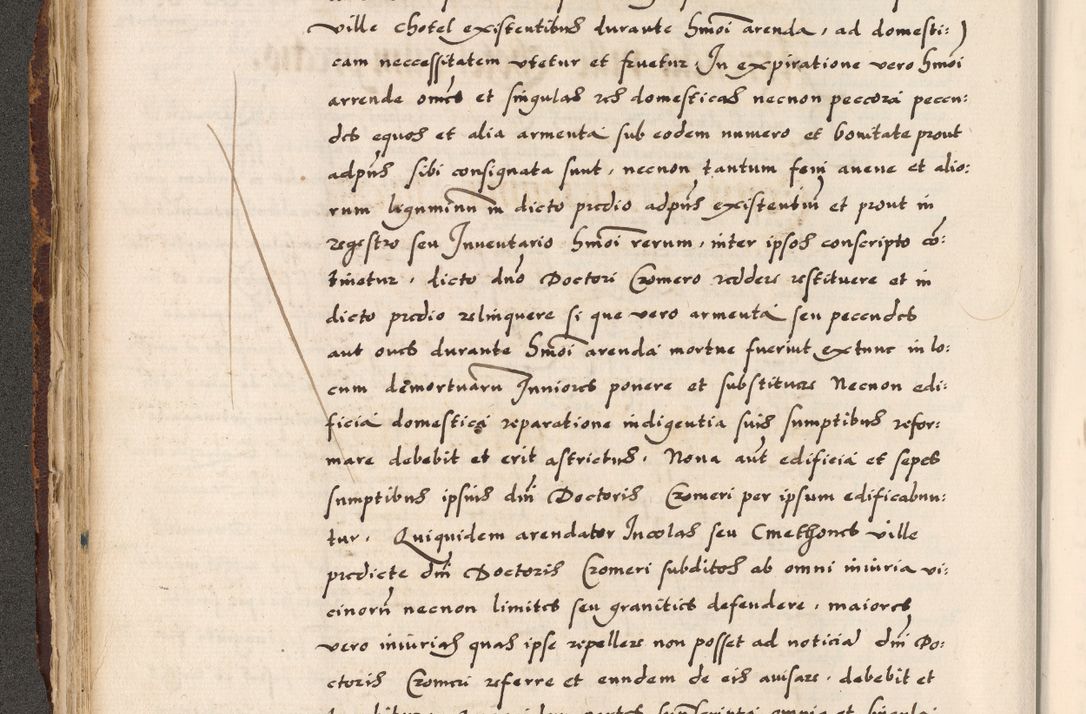 ville Chotel existentibus durante hmoi arenda, ad domesti:
cam neccessitatem vtetur et fruetur. In expiratione vero hmoi
arrende omes et singulas res domesticas necnon peccora pecen:
des equos et alia armenta sub eodem numero et bonitate prout
adpns sibi consignata sunt, necnon tantum feni avene et alio:
rum leguminu in dicto predio adpns existentiu et prout in
regestro seu Inuentario hmoi rerum, inter ipsos conscripto co:
tinetur, dicto dno Doctori Cromero reddere restituere et in
dicto predio relinquere si que vero armenta seu pecendes
aut oues durante hmoi arenda mortue fueriut ex tunc in lo:
cum demortuaru Iuniores ponere et substituere Necnon edi:
ficia domestica reparatione indigentia suis sumptibus refor:
mare debebit et erit astrictus. Noua aut edificia et sepes
sumptibus ipsius dni Doctoris Cromeri per ipsum edificabuu:
tur. Quiquidem arendator Incolas seu Cmethones ville
predicte dni Doctoris Cromeri subditos ab omni iniuria vi:
cinoru necnon limites seu granities defendere, maiores
vero iniurias quas ipse repellere non posset ad noticia dni Do:
ctoris Cromeri referre et eundem de eis auisare, debebit et